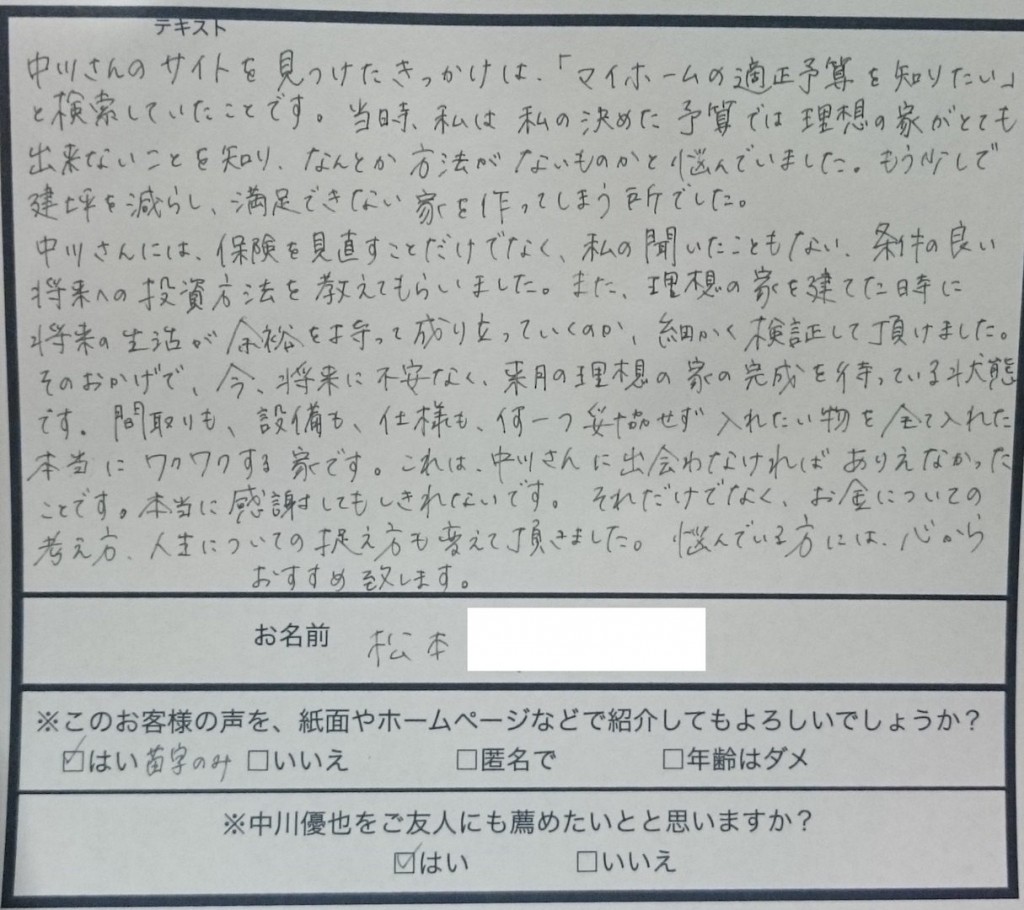 テキスト
中川さんのサイトを見つけたきっかけは、「マイホームの適正予算を知りたい」
と検索していたことです。当時、私は私の決めた予算では理想の家がとても
出来ないことを知り、なんとか方法がないものかと悩んでいました。もう少しで
建坪を減らし、満足できない家を作ってしまう所でした。
中川さんには、保険を見直すことだけでなく、私の聞いたこともない、条件の良い
将来への投資方法を教えてもらいました。また、理想の家を建てた時に
将来の生活が余裕を持って成り立っていくのか、細かく検証して頂けました。
そのおかげで、今、将来に不安なく、来月の理想の家の完成を待っている状態
です。間取りも、設備も、仕様も、何一つ妥協せず入れたい物を全て入れた
本当にワクワクする家です。これは、中川さんに出会わなければありえなかった
ことです。本当に感謝してもしきれないです。それだけでなく、お金についての
考え方、人生についての捉え方も変えて頂きました。悩んでいる方には、心から
おすすめ致します。
お名前 松本
※このお客様の声を、紙面やホームページなどで紹介してもよろしいでしょうか？
☑はい 苗字のみ □いいえ □匿名で □年齢はダメ
※中川優也をご友人にも薦めたいとと思いますか？
☑はい □いいえ